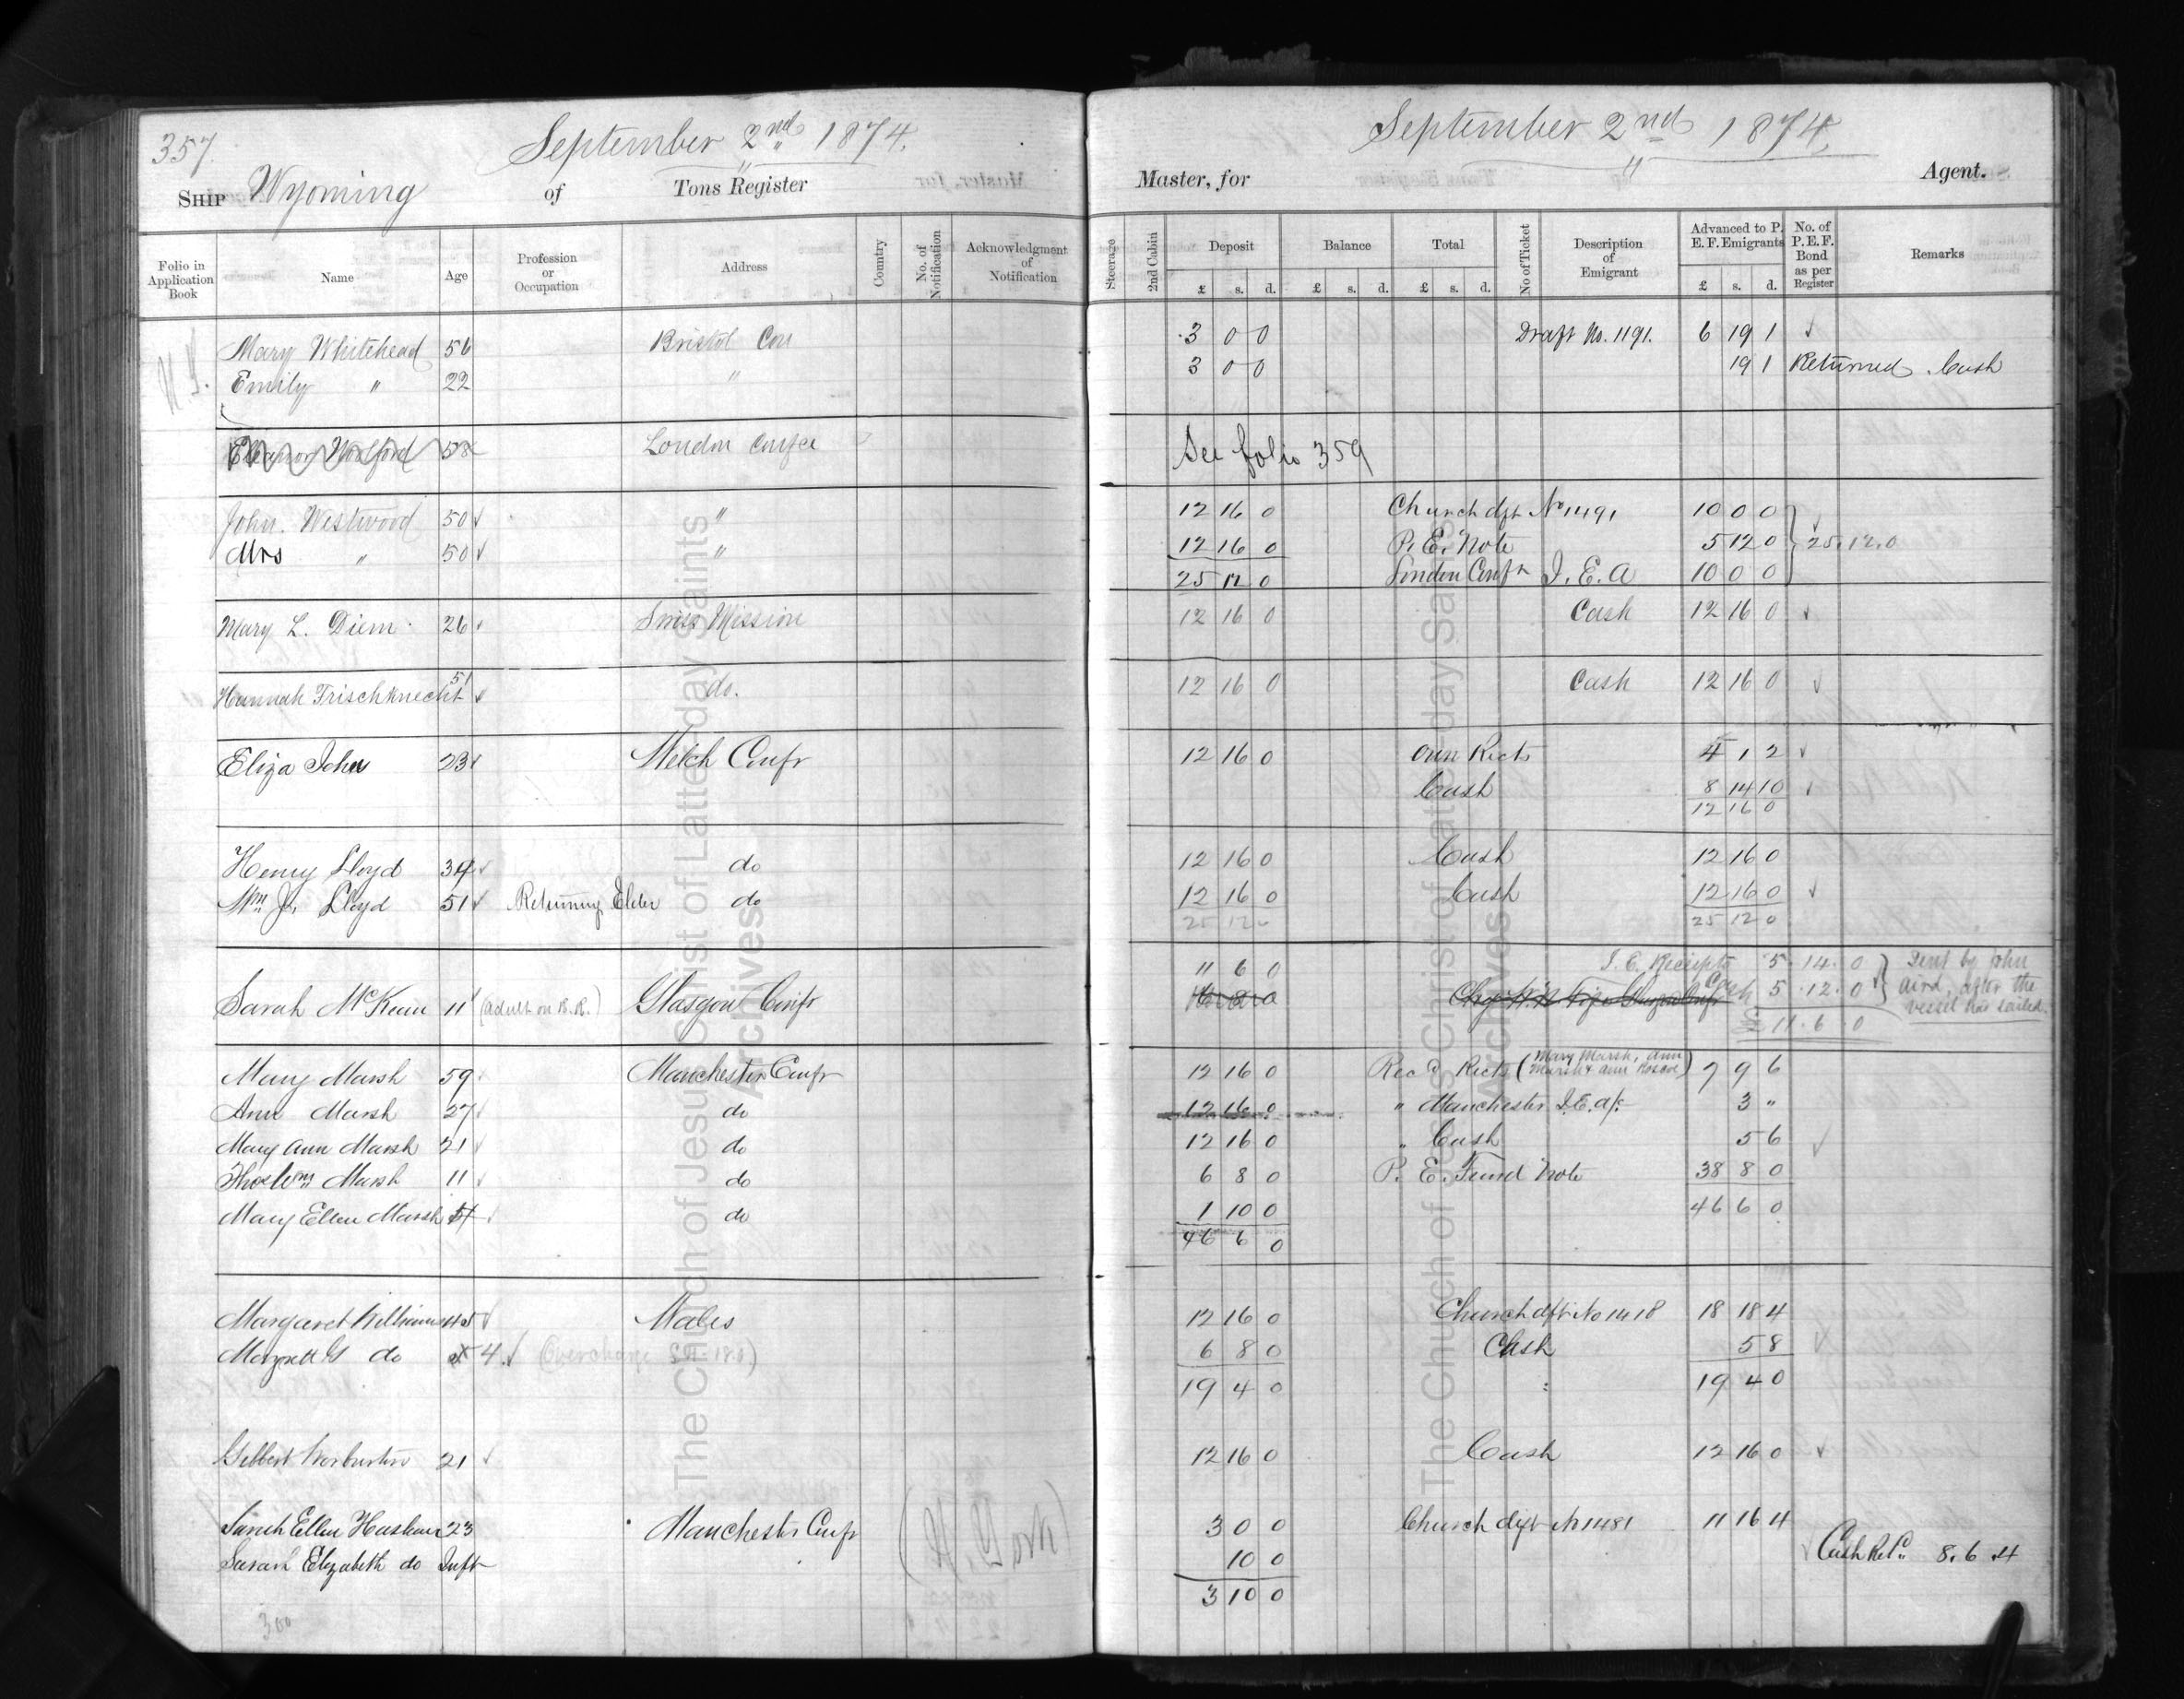 357. September 2nd 1874.
SHIP Wyoming of Tons Register
Folio in Application Book Name Age Profession or Occupation Address Country No. of Notification Acknowledgment of Notification
N.Y. Mary Whitehead 56 Bristol Con
Emily " 22 "
Eleanor Horsford 58 London Confce
John. Westwood 50 "
Mrs " 50 "
Mary L. Diem 26 Swiss Mission
Hannah Frischknecht 51 do.
Eliza John 23 Welch Confr
Henry Lloyd 34 do
Wm J. Lloyd 51 Returning Elder do
Sarah McKean 11 (adult on B.R.) Glasgow Confr
Mary Marsh 59 Manchester Confr
Ann Marsh 27 do
Mary Ann Marsh 21 do
Thos Wm Marsh 11 do
Mary Ellen Marsh do
Margaret Williams 45 Wales
do 4 (Overcharge
Gilbert Warburton 21
Sarah Ellen Haslam 23 Manchester Confr
Sarah Elizabeth do Inft
300
September 2nd 1874.
Master, for Agent.
Steerage 2nd Cabin Deposit Balance Total No of Ticket Description of Emigrant Advanced to P. E. F. Emigrants No. of P.E.F. Bond as per Register Remarks
£ s. d. £ s. d. £ s. d. £ s. d.
3 0 0 Draft No. 1191. 6 19 1
3 0 0 19 1 Returned Cash
See folio 359
12 16 0 Church dft No 1491 10 0 0
12 16 0 P. E. Note 5 12 0 25.12.0
25 12 0 London Confr I. E. A 10 0 0
12 16 0 Cash 12 16 0
12 16 0 Cash 12 16 0
12 16 0 Own Rects 4 1 2
Cash 8 14 10
12 16 0
12 16 0 Cash 12 16 0
12 16 0 Cash 12 16 0
25 12 0 25 12 0
11 6 0 I. E. Receipts 5. 14. 0 Sent by John
Cash 5. 12. 0 Aird, after the
£ 11. 6. 0 vessel had sailed.
12 16 0 Recd Rects (Mary Marsh, Ann Marsh & Ann Roscoe) 7 9 6
12 16 0 " Manchester I.E. a/c 3 "
12 16 0 " Cash 5 6
6 8 0 P. E. Fund Note 38 8 0
1 10 0 46 6 0
46 6 0
12 16 0 Church dft No 1418 18 18 4
6 8 0 Cash 5 8
19 4 0 19 4 0
12 16 0 Cash 12 16 0
3 0 0 Church dft No 1481 11 16 4
10 0 Cash Retd 8. 6. 4
3 10 0
The Church of Jesus Christ of Latter-day Saints
Archives
The Church of Jesus Christ of Latter-day Saints
Archives